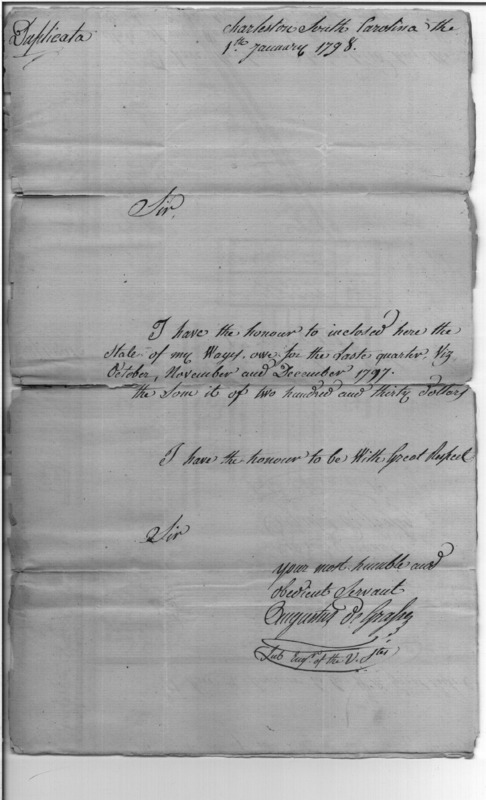 Duplicata
Charleston South Carolina the
1th January 1798.
Sir,
I have the honour to inclosed here the
State of my Wages, owe for the Last quarter, Viz
October, November and December 1797.
the Som it of two hundred and thirty Dollars
I have the honour to be With Great Respect
Sir
your most humble and
obedient Servant
Augustus de Grasse
Sub Engr. of the V. Stes